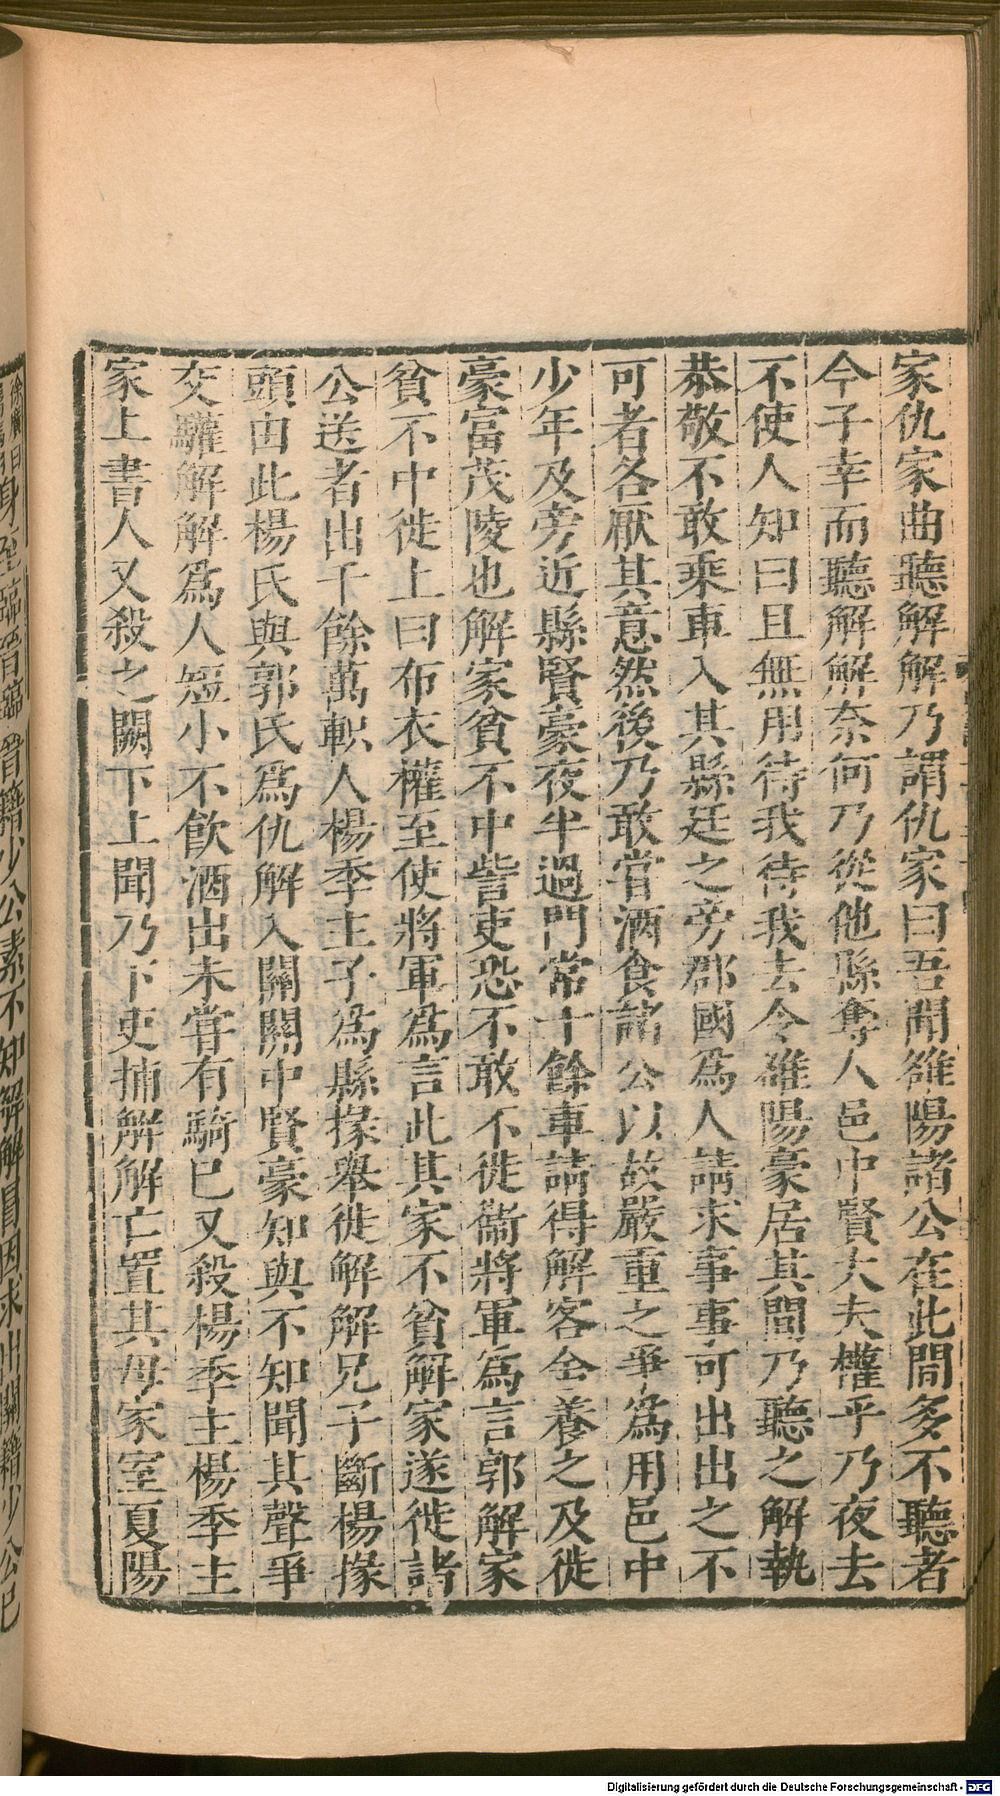 家仇家曲聽解解乃謂仇家曰吾聞雒陽諸公在此間多不聽者
今子幸而聽解解奈何乃從他縣奪人邑中賢大夫權乎乃夜去
不使人知曰且無用待我待我去令雒陽豪居其間乃聽之解執
恭敬不敢乘車入其縣廷之旁郡國爲人請求事事可出出之不
可者各厭其意然後乃敢嘗酒食諸公以故嚴重之爭爲用邑中
少年及旁近縣賢豪夜半過門常十餘車請得解客舍養之及徙
豪富茂陵也解家貧不中訾吏恐不敢不徙衞將軍爲言郭解家
貧不中徙上曰布衣權至使將軍爲言此其家不貧解家遂徙諸
公送者出千餘萬軹人楊季主子爲縣掾舉徙解解兄子斷楊掾
頭由此楊氏與郭氏爲仇解入關關中賢豪知與不知聞其聲爭
交驩解解爲人短小不飲酒出未嘗有騎已又殺楊季主楊季主
家上書人又殺之闕下上聞乃下吏捕解解亡置其母家室夏陽
身至臨晉臨晉籍少公素不知解解冒因求出關籍少公已
Digitalisierung gefördert durch die Deutsche Forschungsgemeinschaft - DFG